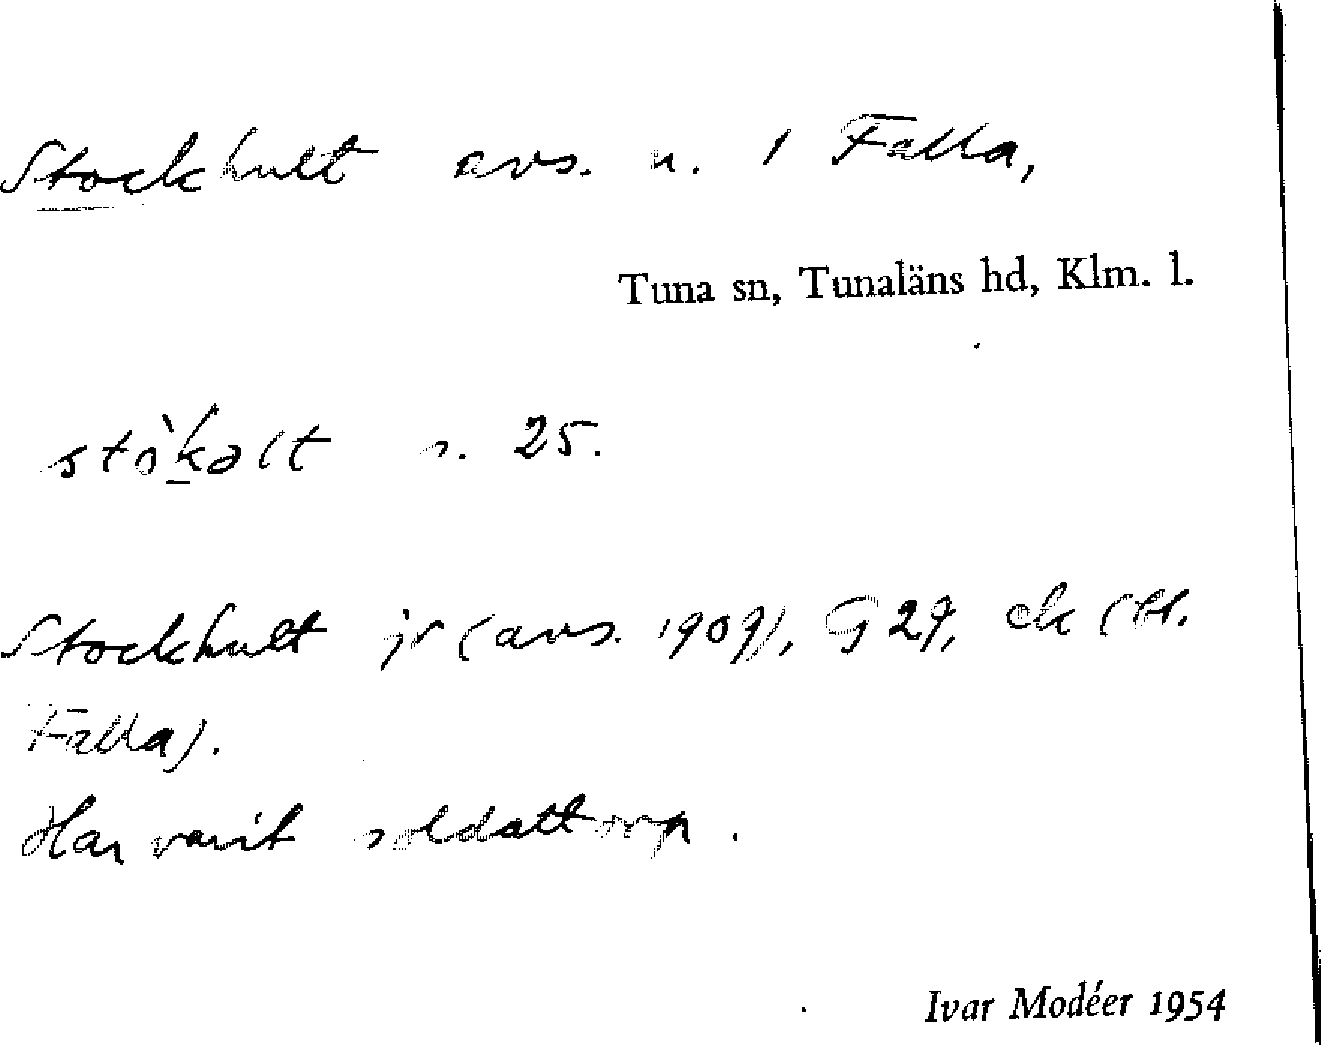 Stockhult avs. u. 1 Falla,
Tuna sn, Tunaläns hd, Klm. l.
stòkəlt s. 25.
Stockhult jr (avs. 1909), G 29, ek (bl.
Falla).
Har varit soldattorp.
Ivar Modéer 1954